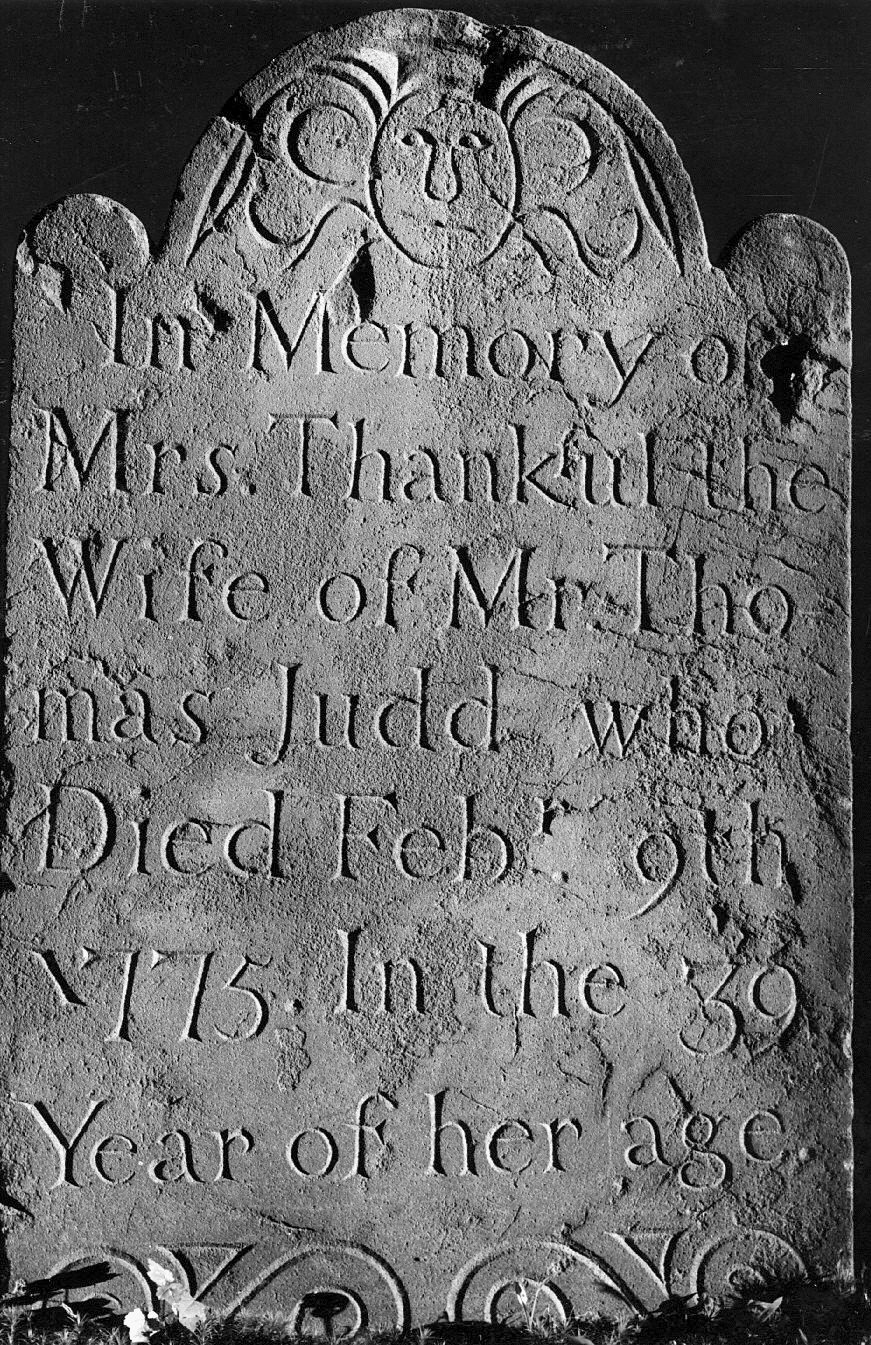 In Memory of
Mrs. Thankful the
Wife of Mr. Tho
mas Judd who
Died Febr. 9th
1775. In the 39
Year of her age